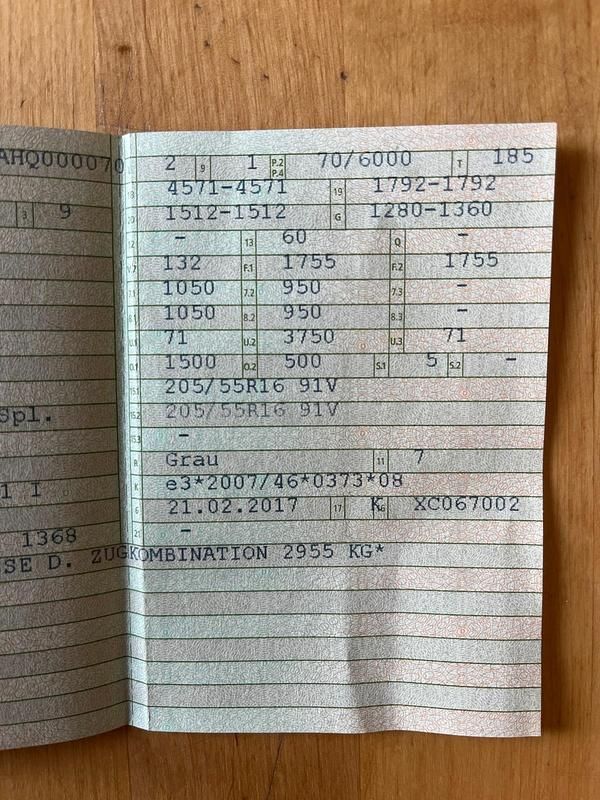 AHQ000070 2 9 1 P.2 P.4 70/6000 T 185
18 4571-4571 19 1792-1792
3 9 20 1512-1512 G 1280-1360
12 - 13 60 Q -
V.7 132 F.1 1755 F.2 1755
7.1 1050 7.2 950 7.3 -
8.1 1050 8.2 950 8.3 -
U.1 71 U.2 3750 U.3 71
O.1 1500 O.2 500 S.1 5 S.2 -
15.1 205/55R16 91V
Spl. 15.2 205/55R16 91V
15.3 -
R Grau 11 7
1 I K e3*2007/46*0373*08
6 21.02.2017 17 K 16 XC067002
1368 21 -
SE D. ZUGKOMBINATION 2955 KG*